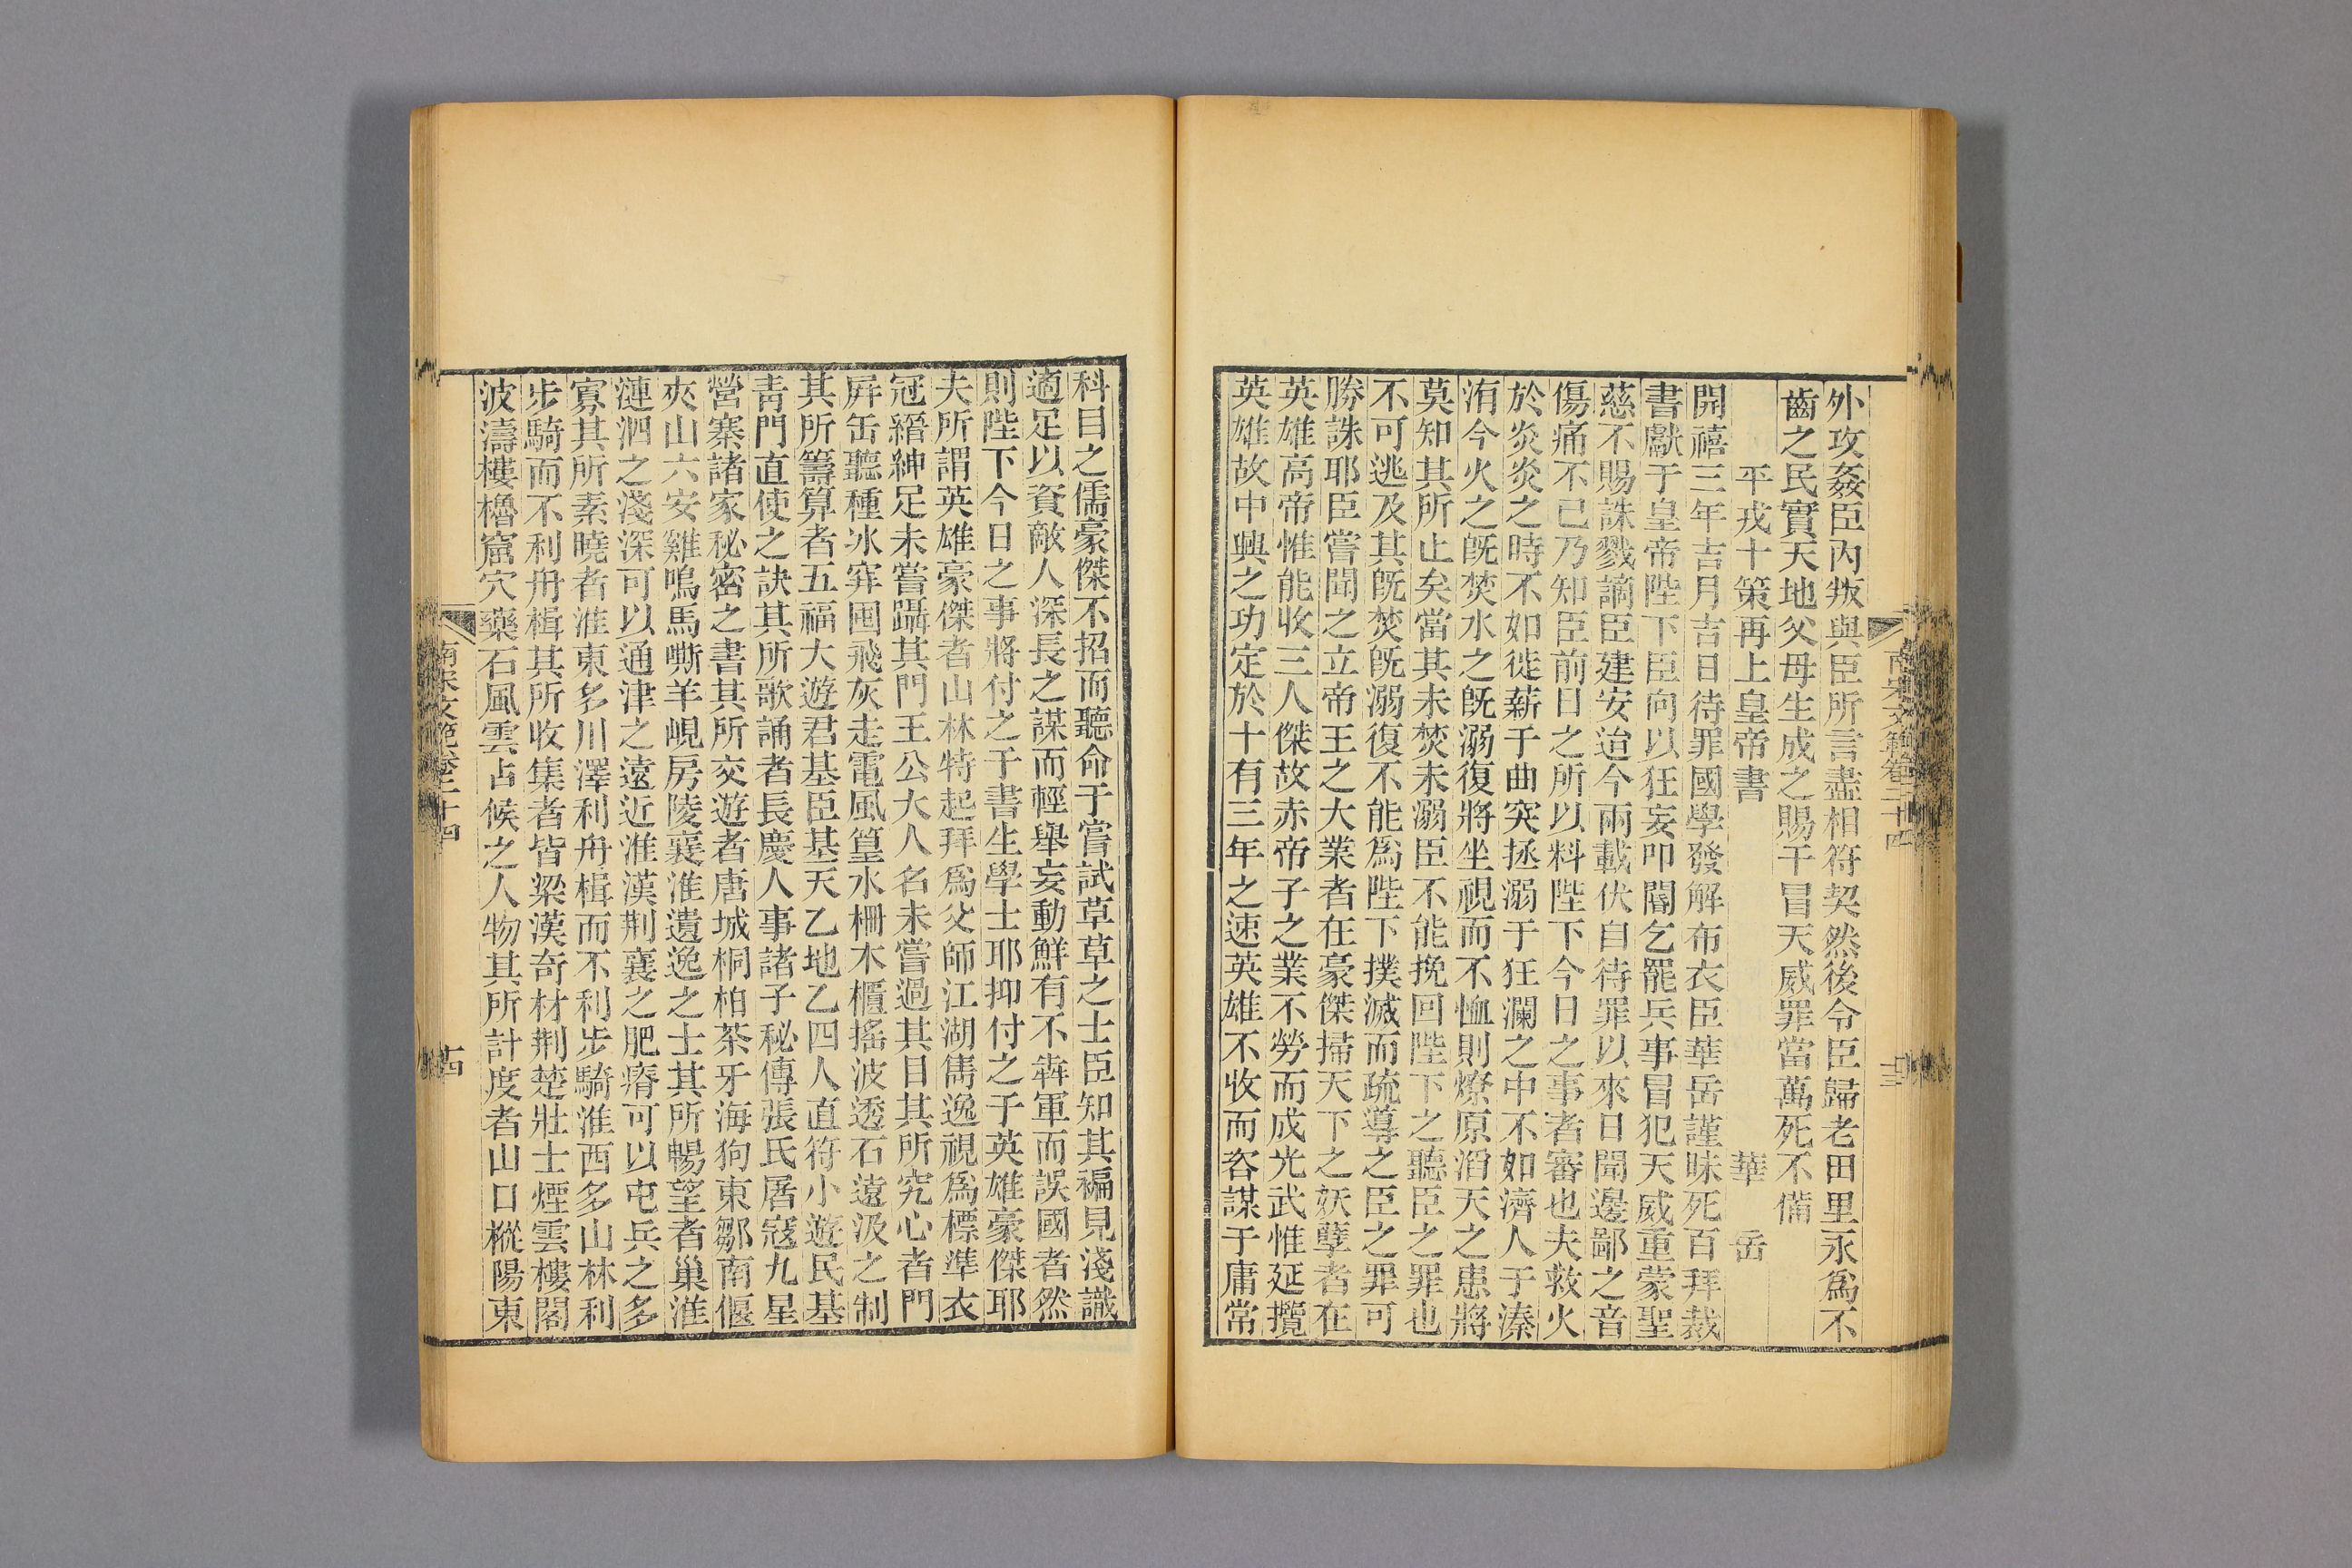 外攻姦臣內叛與臣所言盡相符契然後令臣歸老田里永爲不
齒之民實天地父母生成之賜干冒天威罪當萬死不備
平戎十策再上皇帝書
華岳
開禧三年吉月吉日待罪國學發解布衣臣華岳謹昧死百拜裁
書獻于皇帝陛下臣向以狂妄叩閽乞罷兵事冒犯天威重蒙聖
慈不賜誅戮謫臣建安迨今兩載伏自待罪以來日聞邊鄙之音
傷痛不已乃知臣前日之所以料陛下今日之事者審也夫救火
於炎炎之時不如徙薪于曲突拯溺于狂瀾之中不如濟人于溱
洧今火之旣焚水之旣溺復將坐視而不恤則燎原滔天之患將
莫知其所止矣當其未焚未溺臣不能挽回陛下之聽臣之罪也
不可逃及其旣焚旣溺復不能爲陛下撲滅而疏導之臣之罪可
勝誅耶臣嘗聞之立帝王之大業者在豪傑掃天下之妖孽者在
英雄高帝惟能收三人傑故赤帝子之業不勞而成光武惟延攬
英雄故中興之功定於十有三年之速英雄不收而客謀于庸常
南宋文範卷二十四
十三
科目之儒豪傑不招而聽命于嘗試草草之士臣知其褊見淺識
適足以資敵人深長之謀而輕舉妄動鮮有不犇軍而誤國者然
則陛下今日之事將付之于書生學士耶抑付之于英雄豪傑耶
夫所謂英雄豪傑者山林特起拜爲父師江湖雋逸視爲標準衣
冠縉紳足未嘗躡其門王公大人名未嘗過其目其所究心者門
屛缶聽種冰穽囤飛灰走電風篁水柵木櫃搖波透石遠汲之制
其所籌算者五福大遊君基臣基天乙地乙四人直符小遊民基
靑門直使之訣其所歌誦者長慶人事諸子秘傳張氏屠寇九星
營寨諸家秘密之書其所交遊者唐城桐柏茶牙海狗東鄒南偃
夾山六安雞鳴馬嘶羊峴房陵襄淮遺逸之士其所暢望者巢淮
漣泗之淺深可以通津之遠近淮漢荆襄之肥瘠可以屯兵之多
寡其所素曉者淮東多川澤利舟楫而不利步騎淮西多山林利
步騎而不利舟楫其所收集者皆梁漢奇材荆楚壯士煙雲樓閣
波濤樓櫓窟穴藥石風雲占候之人物其所計度者山口樅陽東
南宋文範卷二十四
十四